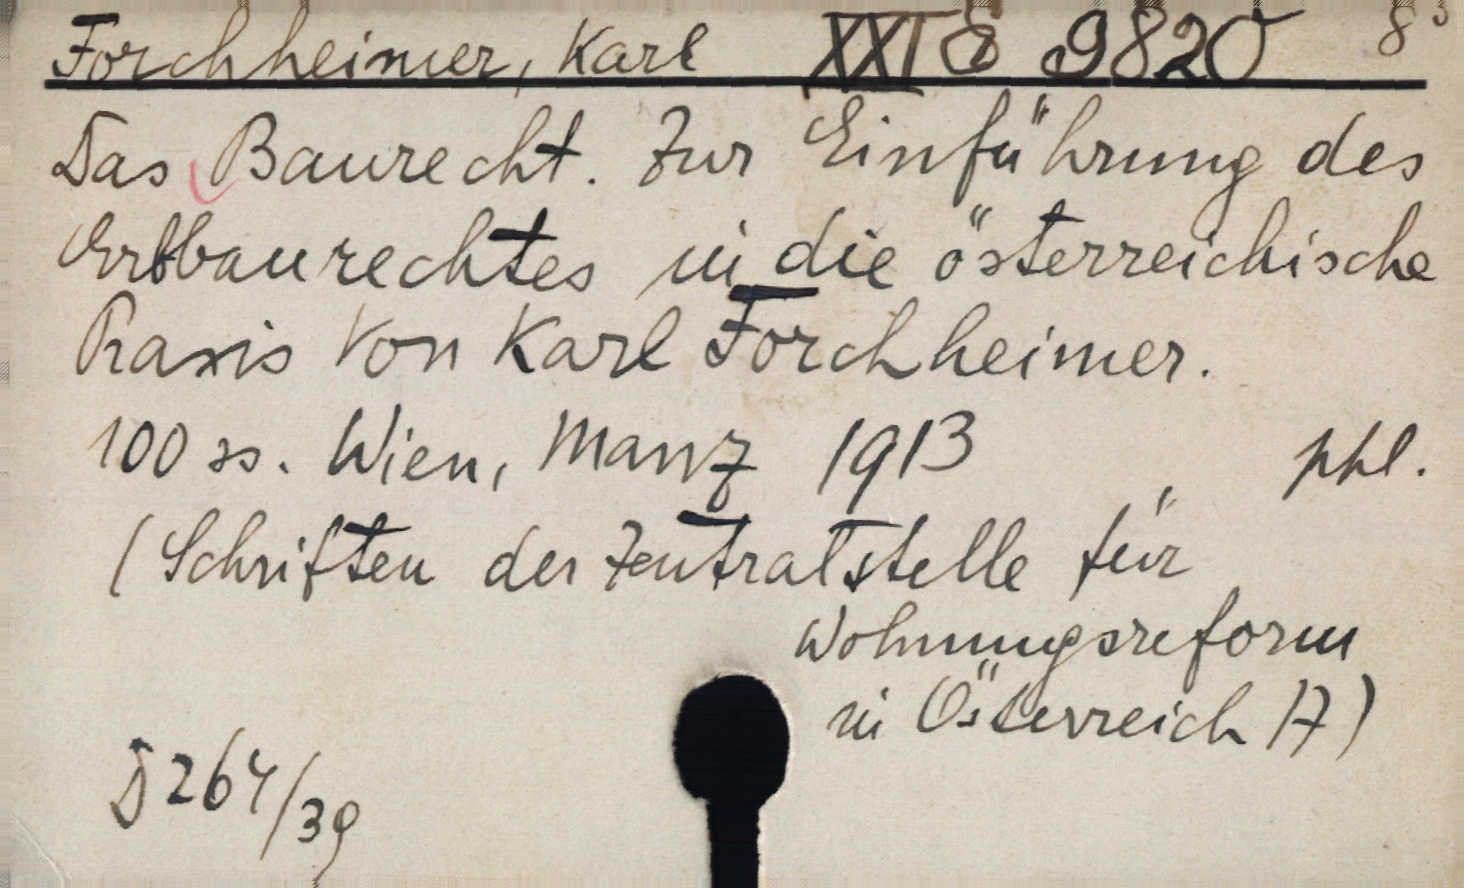 Forchheimer, Karl XXI E 9820 8°
Das Baurecht. Zur Einführung des
Erbbaurechtes in die österreichische
Praxis von Karl Forchheimer.
100 ss. Wien, Manz 1913
(Schriften der Zentralstelle für
Wohnungsreform
in Österreich 17)
D 264/39